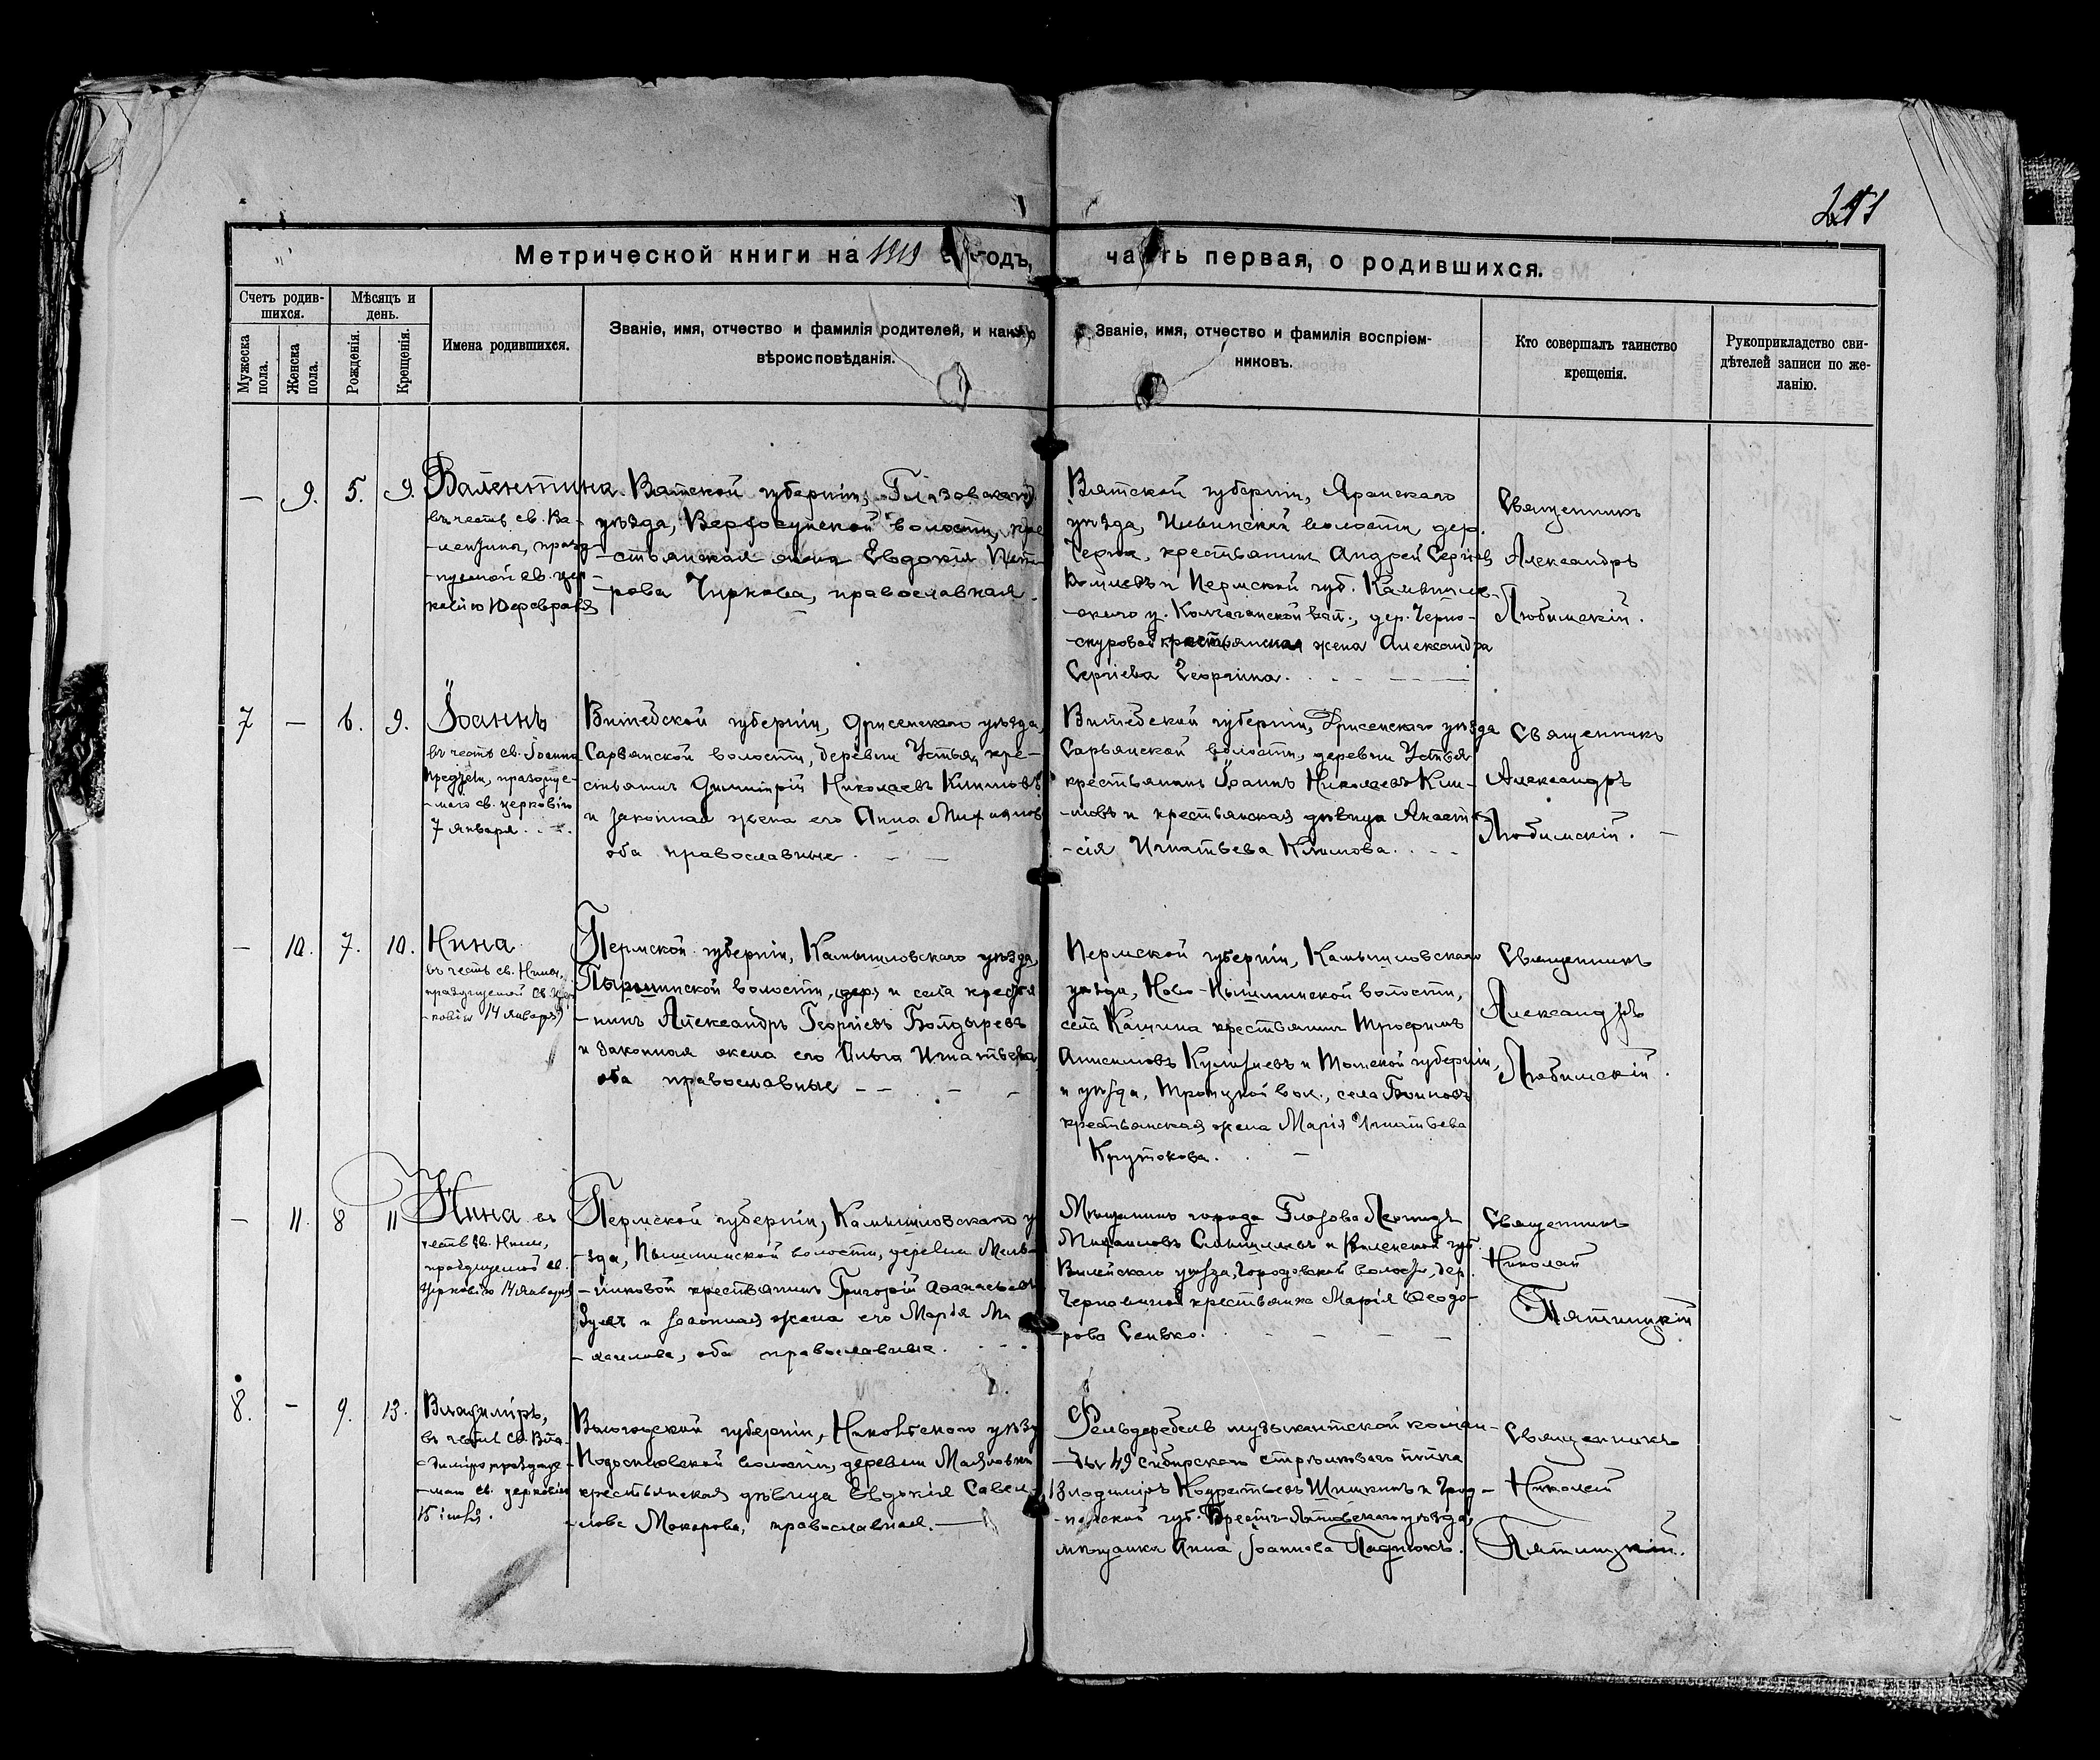 251
Метрической книги на 1919 годъ, часть первая, о родившихся.
Счетъ родив-
шихся.
Мужеска
пола.
Женска
пола.
Мѣсяцъ и
день.
Рожденія.
Крещенія.
Имена родившихся.
Званіе, имя, отчество и фамилія родителей, и какого
вѣроисповѣданія.
Званіе, имя, отчество и фамилія воспріем-
никовъ.
Кто совершалъ таинство
крещенія.
Рукоприкладство сви-
дѣтелей записи по же-
ланію.
— 9. 5. 9.
Валентина
въ честь св. Ва-
-лентины, празд-
-нуемой св. цер
-ковію 10 февраля
Вятской губерніи, Глазовскаго
уѣзда, Верхосунской волости, кре
-стьянская жена Евдокія Пет-
-рова Чиркова, православная.
Вятской губерніи, Яранскаго
уѣзда, Ильинской волости дер.
крестьянинъ Андрей Сергіевъ
и Пермской губ. Камышлов-
-скаго у. вол., дер. Черно-
-скуровой крестьянская жена Александра
Сергіева
Священникъ
Александръ
Любимскій.
7 — 6. 9.
Іоаннъ
въ честь св. Іоанна
Предтечи, празднуе-
-маго св. церковію
7 января.
Витебской губерніи, Дрисенскаго уѣзда,
Сарьянской волости, деревни Устья, кре-
стьянинъ Димитрій Николаевъ Климовъ
и законная жена его Анна
оба православные.
Витебской губерніи, Дрисенскаго уѣзда
Сарьянской волости, деревни Устья
крестьянинъ Іоаннъ Николаевъ Кли-
-мовъ и крестьянская дѣвица Анаста
-сія Игнатьева Климова.
Священникъ
Александръ
Любимскій.
— 10. 7. 10.
Нина
въ честь св. Нины,
празднуемой св. цер
-ковію 14 января
Пермской губерніи, Камышловскаго уѣзда,
волости, и села крестья
-нинъ Александръ Георгіевъ Болдыревъ
и законная жена его Ольга Игнатьева,
оба православные
Пермской губерніи, Камышловскаго
уѣзда, Ново-Пышминской волости,
села крестьянинъ Трофимъ
и Томской губерніи,
и уѣзда, Троицкой вол., села
крестьянская жена Марія Игнатьева
Крутокова.
Священникъ
Александръ
Любимскій.
— 11. 8 11
Нина въ
честь св. Нины,
празднуемой св.
церковію 14 января
Пермской губерніи, Камышловскаго у
-ѣзда, Пышминской волости, деревни Мель-
-никовой крестьянинъ Григорій Аѳанасьевъ
и законная жена его Марія Ми
-хаилова, оба православные.
Мѣщанинъ города Глазова Леонидъ
Михаиловъ и Виленской губ.
Вилейскаго уѣзда, Городокской волости, дер.
крестьянка Марія Ѳеодо-
-рова Сенько.
Священникъ
Николай
Пятницкій
8. — 9. 13.
Владиміръ,
въ честь св. Вла-
-диміра празднуе-
-маго св. церковію
15 іюля.
Вологодской губерніи, Никольскаго уѣзда
волости, деревни
крестьянская дѣвица Евдокія Савел-
-лова Макарова, православная.
Фельдфебель музыкантской коман-
-ды 49 Сибирскаго стрѣлковаго полка
Владиміръ Кондратьевъ Шишкинъ и Грод-
-ненской губ. Брестъ-Литовскаго уѣзда,
мѣщанка Анна Іоаннова
Священникъ
Николай
Пятницкій.